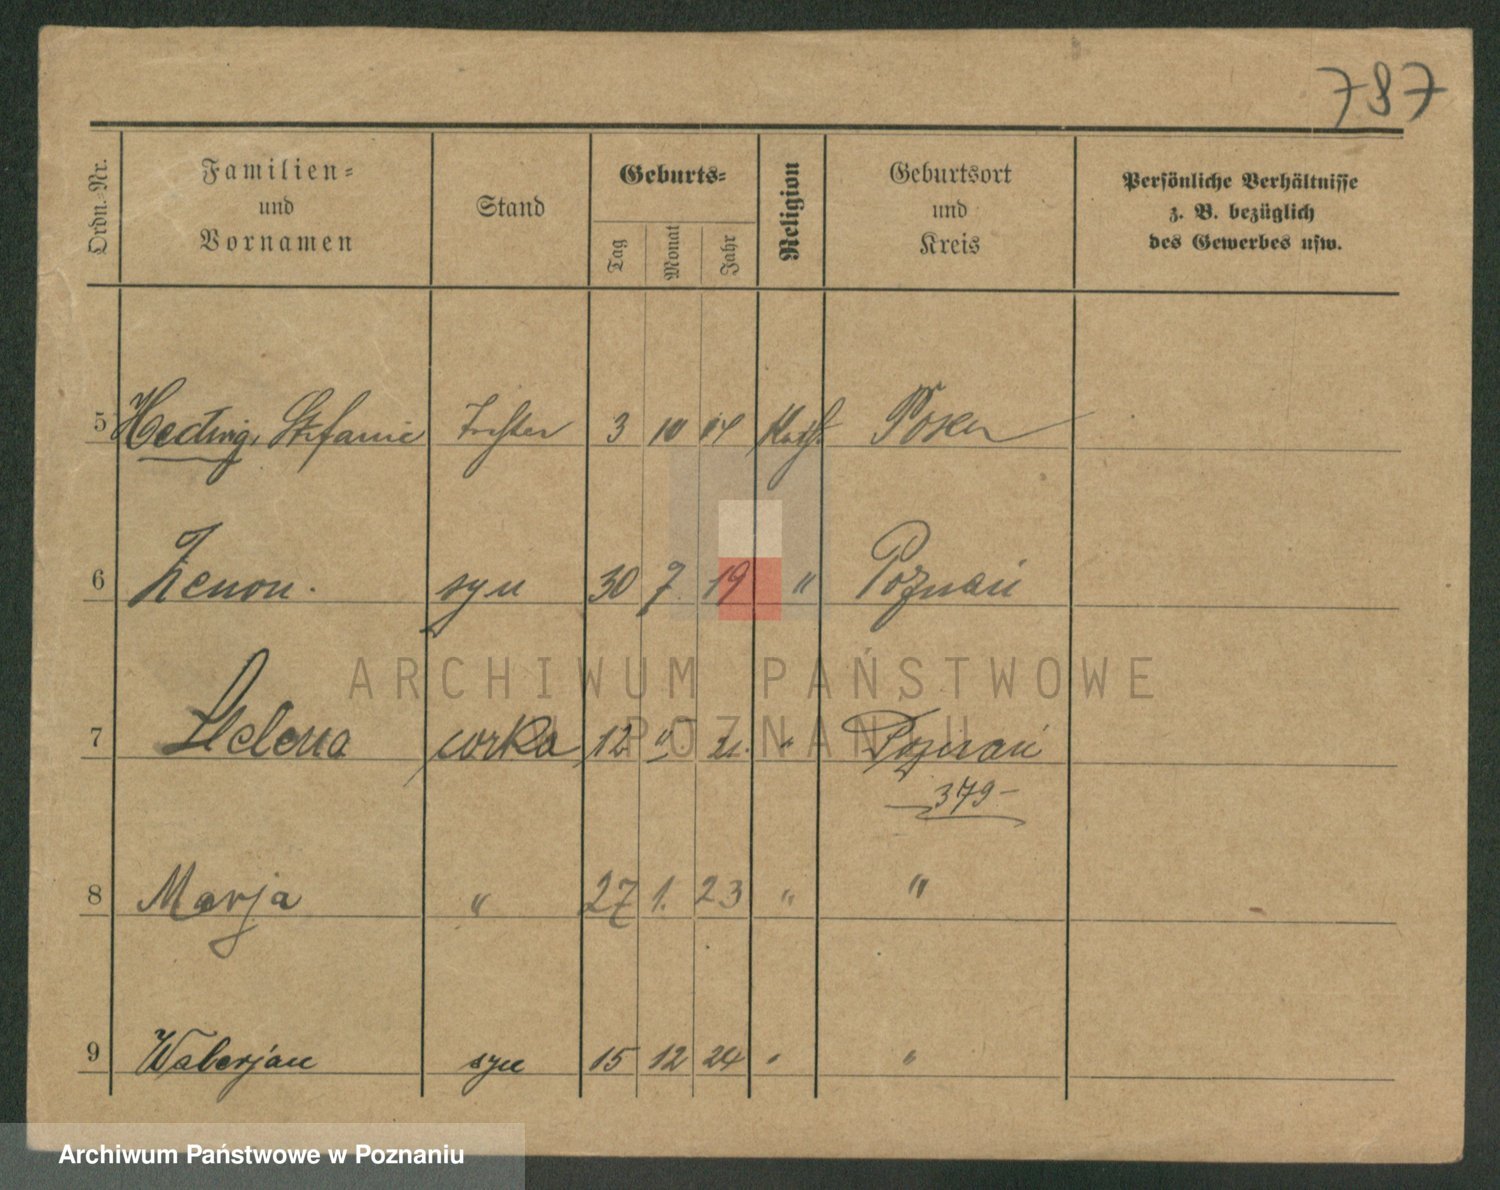 787
Ordn.-Nr.
Familien-
und
Vornamen
Stand
Geburts-
Tag
Monat
Jahr
Religion
Geburtsort
und
Kreis
Persönliche Verhältnisse
z. B. bezüglich
des Gewerbes usw.
5 Hedwig, Stefanie Tochter 3 10 14 Kath. Posen
6 Zenon. syn 30 7. 19 " Poznań
7 Helena corka 12 " 21. " Poznań
379-
8 Marja " 27 1. 23 " "
9 Walerjan syn 15 12 24 " "
ARCHIWUM PAŃSTWOWE
W POZNANIU
Archiwum Państwowe w Poznaniu